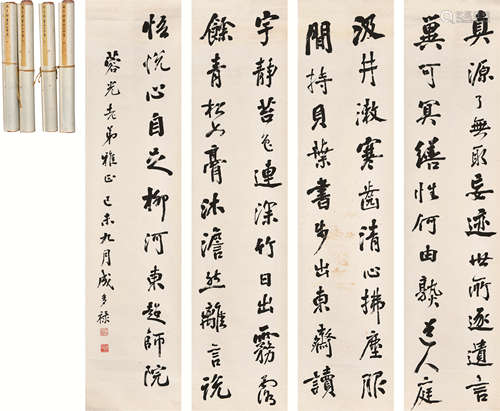 真源了無取妄迹世所逐遺言
冀可冥繕性何由熟道人庭
汲井漱寒齒清心拂塵服
閒持貝葉書步出東齋讀
宇靜苔色連深竹日出霧露
餘青松如膏沐澹然離言說
悟悅心自足柳河東超師院
蓉光老弟雅正 己未九月成多祿